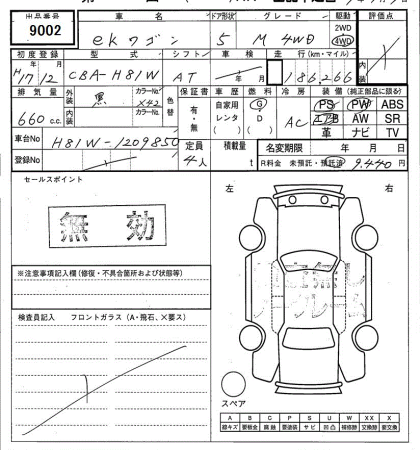 出品番号 車名 ドア形状 グレード 駆動 評価点
9002 ekワゴン 5 M 4WD 2WD 4WD
初度登録 型式 シフト 車検 走行(km・マイル) 内装
H17年12月 CBA-H81W AT 年 月 186,266
排気量 外装 黒 カラーNo. X42 色替 保証書 車歴 燃料 冷房 装備(純正部品に限る)
660c.c. 内装 カラーNo. 有・無 自家用 レンタ G D AC PS PW ABS
エアB AW SR
革 ナビ TV
車台No H81W-1209850 定員 4人 積載量 t 名変期限 年 月 日
登録No R料金 未預託・預託済 9,440円
セールスポイント
無効
左 右
※注意事項記入欄(修復・不具合箇所および状態等)
検査員記入 フロントガラス(A・飛石、×要ス)
スペア
A B C P S U W X XX
線キズ 要板金 腐蝕 要塗装 サビ 凹凸 補修跡 要交換 交換跡